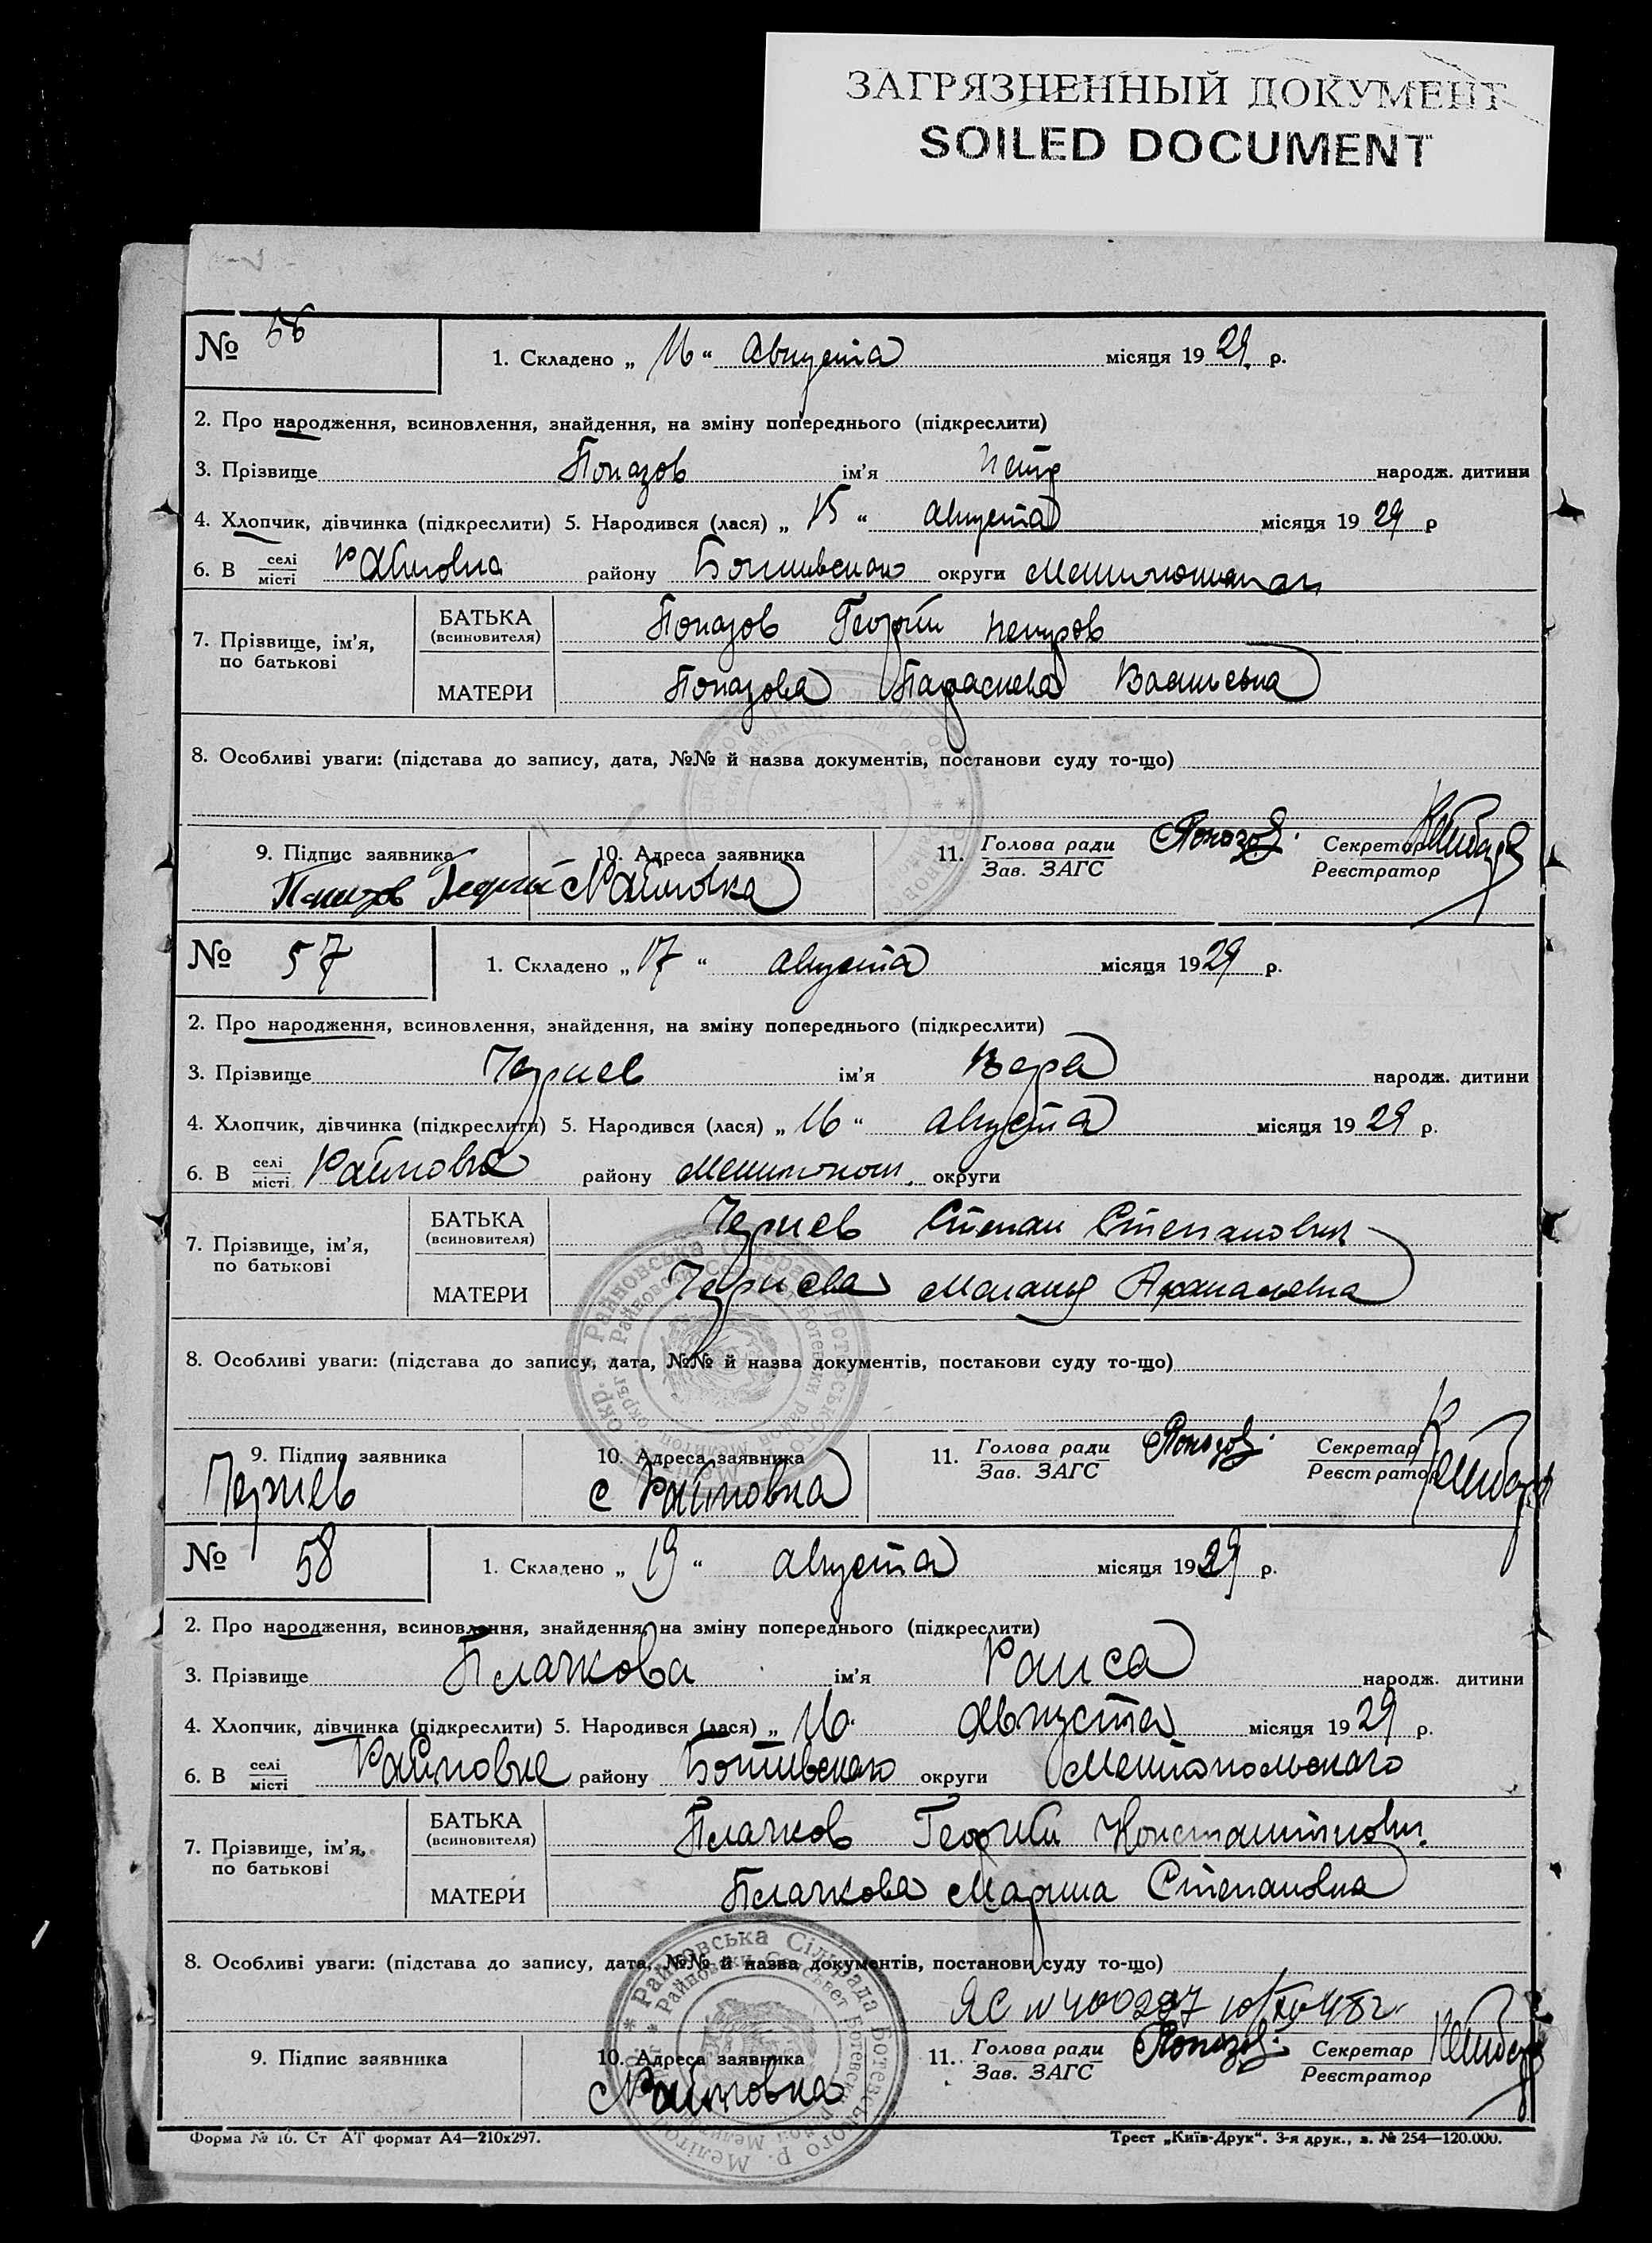 ЗАГРЯЗНЕННЫЙ ДОКУМЕНТ
SOILED DOCUMENT
№ 56
1. Складено „ 16 “ Августа місяця 1929 р.
2. Про народження, всиновлення, знайдення, на зміну попереднього (підкреслити)
3. Прізвище Попазов ім’я Петр народж. дитини
4. Хлопчик, дівчинка (підкреслити) 5. Народився (лася) „ 15 “ Августа місяця 1929 р
6. В селі місті Райновка району Ботиевского округи
7. Прізвище, ім’я, по батькові
БАТЬКА (всиновителя) Попазов Георги Петров
МАТЕРИ Попазова Параскева Васильевна
8. Особливі уваги: (підстава до запису, дата, №№ й назва документів, постанови суду то-що)
9. Підпис заявника 10. Адреса заявника 11. Голова ради Зав. ЗАГС Попазов Секретар Реєстратор
Райновка
№ 57
1. Складено „ 17 “ Августа місяця 1929 р.
2. Про народження, всиновлення, знайдення, на зміну попереднього (підкреслити)
3. Прізвище Чернев ім’я Вера народж. дитини
4. Хлопчик, дівчинка (підкреслити) 5. Народився (лася) „ 16 “ Августа місяця 1929 р.
6. В селі місті Райновка району Мелитопол. округи
7. Прізвище, ім’я, по батькові
БАТЬКА (всиновителя) Чернев Степан Степанович
МАТЕРИ Чернева Маланья
8. Особливі уваги: (підстава до запису, дата, №№ й назва документів, постанови суду то-що)
9. Підпис заявника 10. Адреса заявника 11. Голова ради Зав. ЗАГС Попазов Секретар Реєстратор
Чернев с Райновка
№ 58
1. Складено „ 19 “ Августа місяця 1929 р.
2. Про народження, всиновлення, знайдення, на зміну попереднього (підкреслити)
3. Прізвище Плачкова ім’я Раиса народж. дитини
4. Хлопчик, дівчинка (підкреслити) 5. Народився (лася) „ 16 “ Августа місяця 1929 р.
6. В селі місті Райновке району Ботиевского округи Мелитопольского
7. Прізвище, ім’я, по батькові
БАТЬКА (всиновителя) Плачков Георгий Константинович.
МАТЕРИ Плачкова Марина Степановна
8. Особливі уваги: (підстава до запису, дата, №№ й назва документів, постанови суду то-що)
ЯС № 400297 10/XII-48г
9. Підпис заявника 10. Адреса заявника 11. Голова ради Зав. ЗАГС Попазов Секретар Реєстратор
с Райновка
Форма № 16. Ст АТ формат А4—210х297.
Трест „Київ-Друк“. 3-я друк., з. № 254—120.000.